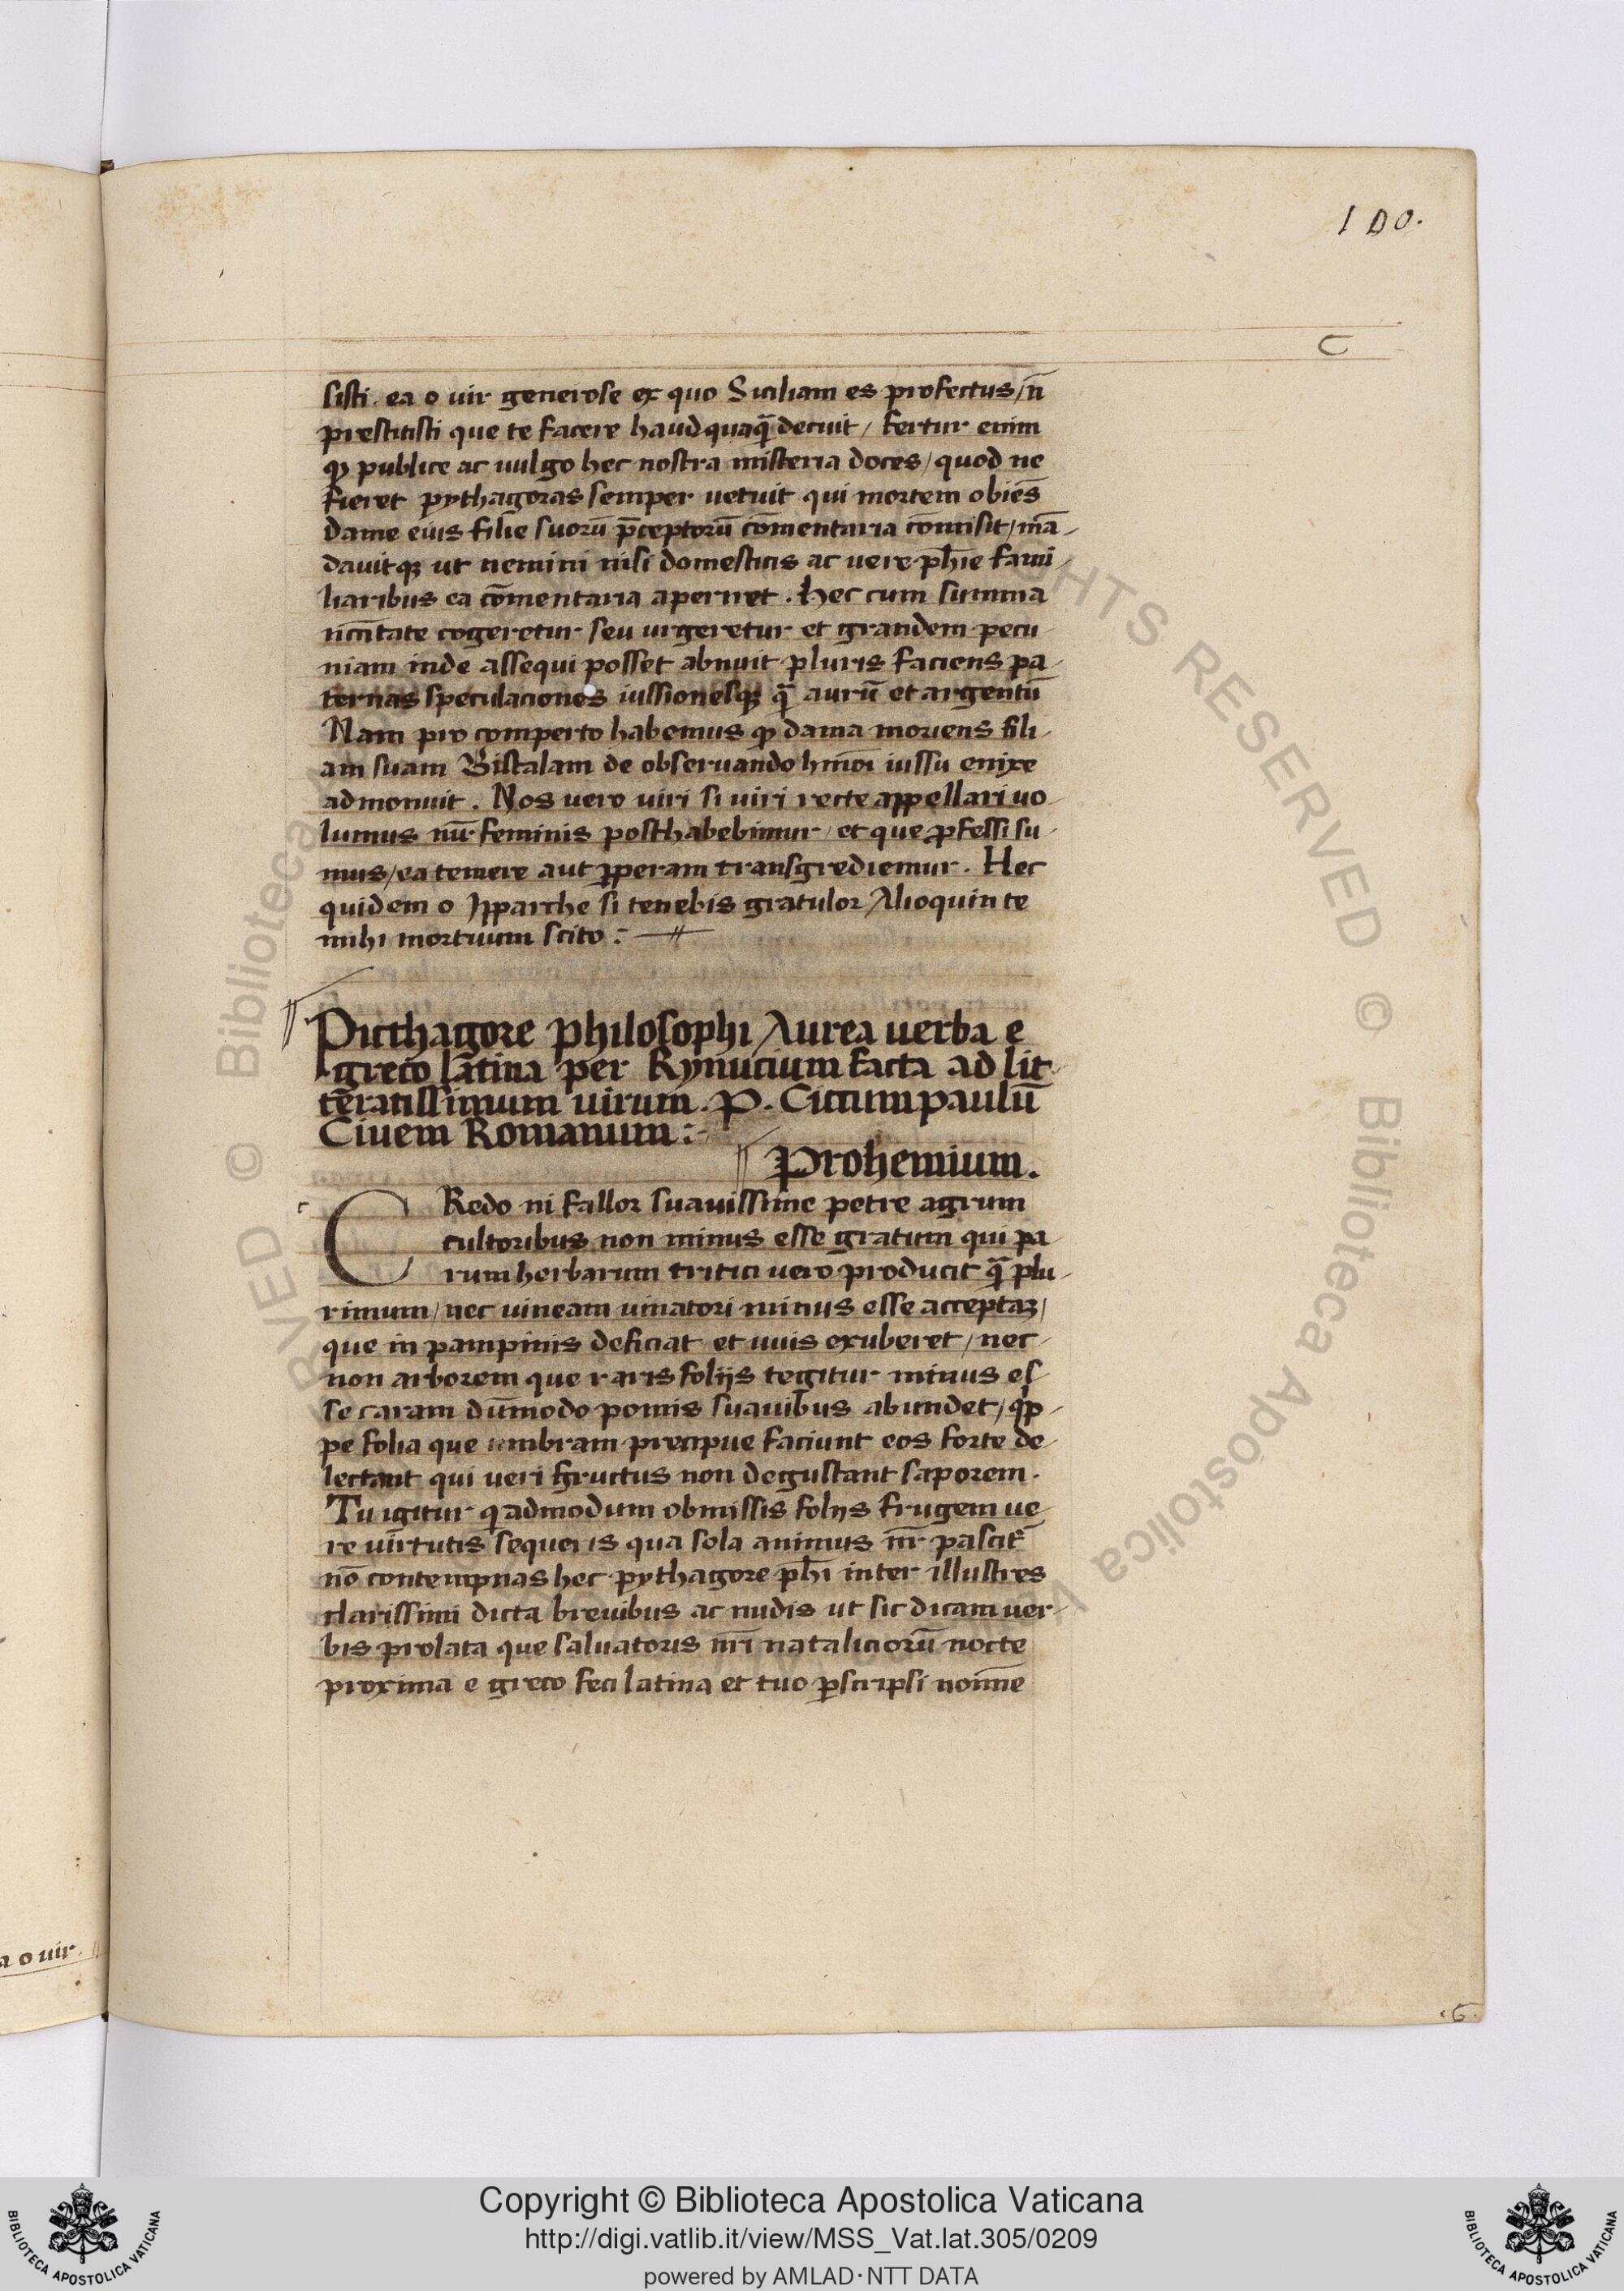 100.
C
sisti. ea o uir generose ex quo Siciliam es profectus / n̄
prestitisti que te facere haudquaqͣ̄ decuit / fertur enim
ꝙ publice ac uulgo hec nostra misteria doces / quod ne
fieret pythagoras semper uetuit qui mortem obiēs
dame eius filie suorū p̄ceptorū cōmentaria cōmisit / mā-
dauitqꝫ ut nemini nisi domesticis ac uere ph̄ie fami-
liaribus ea cōmentaria aperiret. Hec cum summa
nccītate cogeretur seu urgeretur et grandem pecu-
niam inde assequi posset abnuit pluris faciens pa-
ternas speculaciones iussionesqꝫ qͣ̄ aurū et argentū
Nam pro comperto habemus ꝙ dama moriens fili-
am suam Bistalam de obseruando hmōi iussu enixe
admonuit. Nos uero uiri si uiri recte appellari uo-
lumus nū feminis posthabebimur / et que ꝓfessi su-
mus / ea temere aut ꝑperam transgrediemur. Hec
quidem o Ipparche si tenebis gratulor Alioquin te
mihi mortuum scito :-
Picthagore philosophi Aurea uerba e
greco latina per Rynucium facta ad lit-
teratissimum uirum. P. Cictumpaulū
Ciuem Romanum :-
Prohemium.
CRedo ni fallor suauissime petre agrum
cultoribus non minus esse gratum qui pa-
rum herbarum tritici uero producit qͣ̄ plu-
rimum / nec uineam uinatori minus esse acceptaꝫ /
que in pampinis deficiat et uuis exuberet / nec-
non arborem que raris folijs tegitur minus es-
se caram dūmodo pomis suauibus abundet / qͥp-
pe folia que umbram precipue faciunt eos forte de-
lectant qui ueri fructus non degustant saporem.
Tu igitur q̄admodum obmissis folijs frugem ue-
re uirtutis sequeris qua sola animus nr̄ pascit᷑
nō contempnas hec pythagore ph̄i inter illustres
clarissimi dicta breuibus ac nudis ut sic dicam uer-
bis prolata que saluatoris nr̄i nataliciorū nocte
proxima e greco feci latina et tuo ꝑscripsi noīne
a o uir
.G.
Copyright © Biblioteca Apostolica Vaticana
http://digi.vatlib.it/view/MSS_Vat.lat.305/0209
powered by AMLAD·NTT DATA
BIBLIOTECA APOSTOLICA VATICANA
BIBLIOTECA APOSTOLICA VATICANA